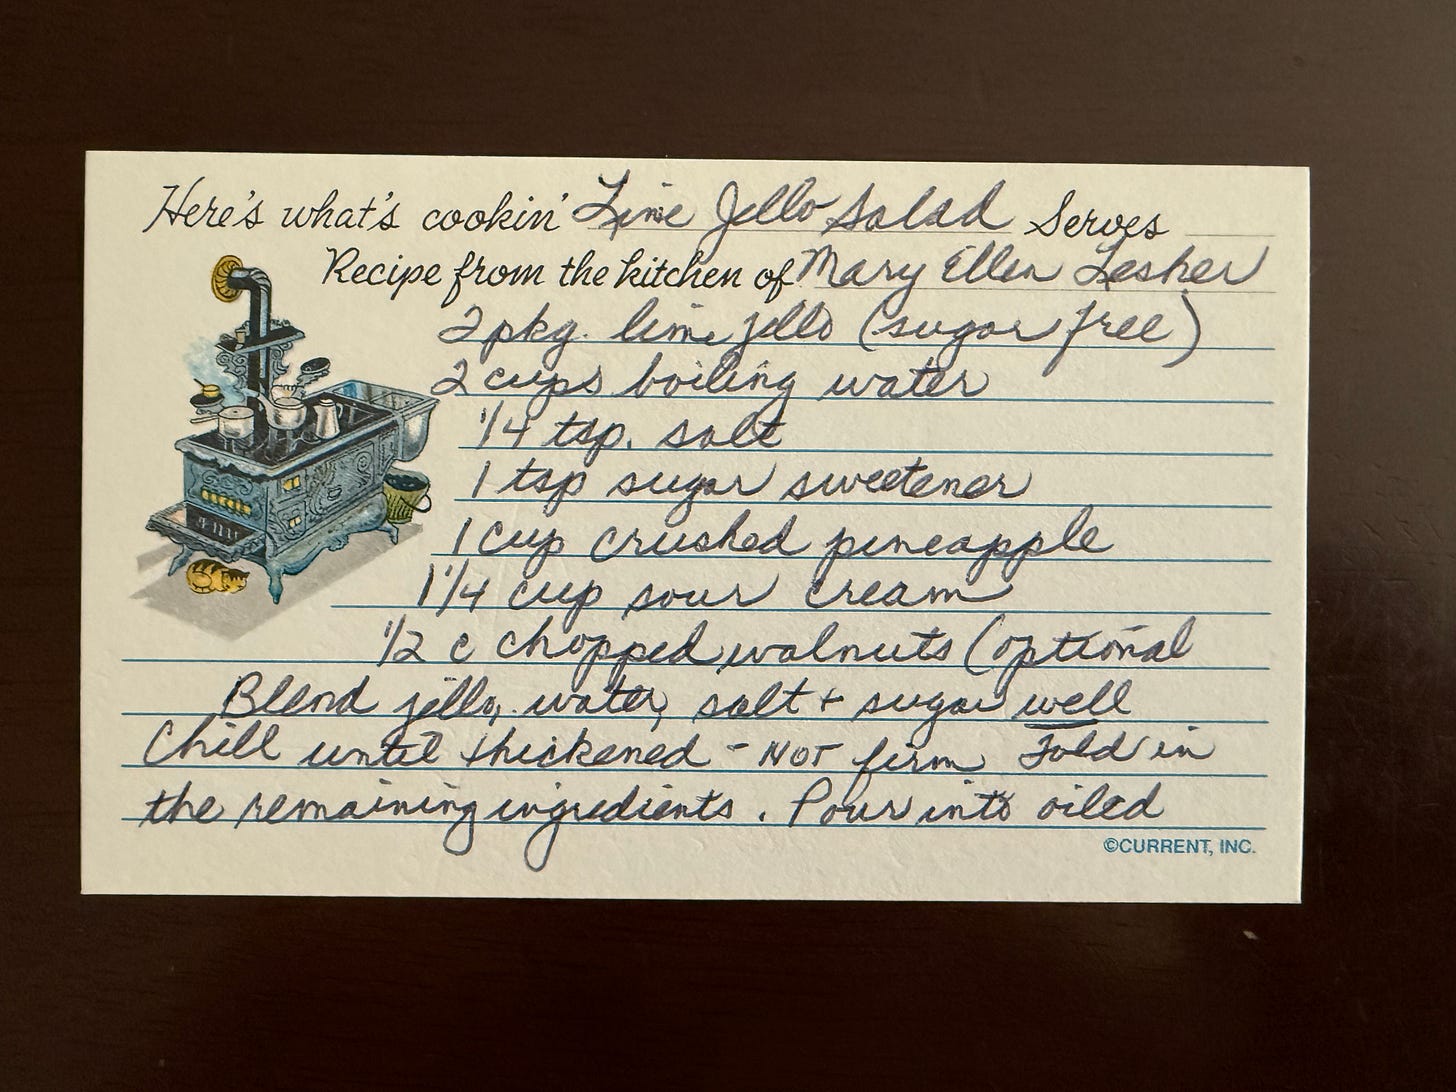 Here's what's cookin' Lime Jello Salad Serves
Recipe from the kitchen of Mary Ellen Lesher
2 pkg. lime jello (sugar free)
2 cups boiling water
1/4 tsp. salt
1 tsp sugar sweetener
1 cup crushed pineapple
1 1/4 cup sour cream
1/2 c chopped walnuts (optional
Blend jello, water, salt + sugar well
Chill until thickened - NOT firm Fold in
the remaining ingredients. Pour into oiled
©CURRENT, INC.